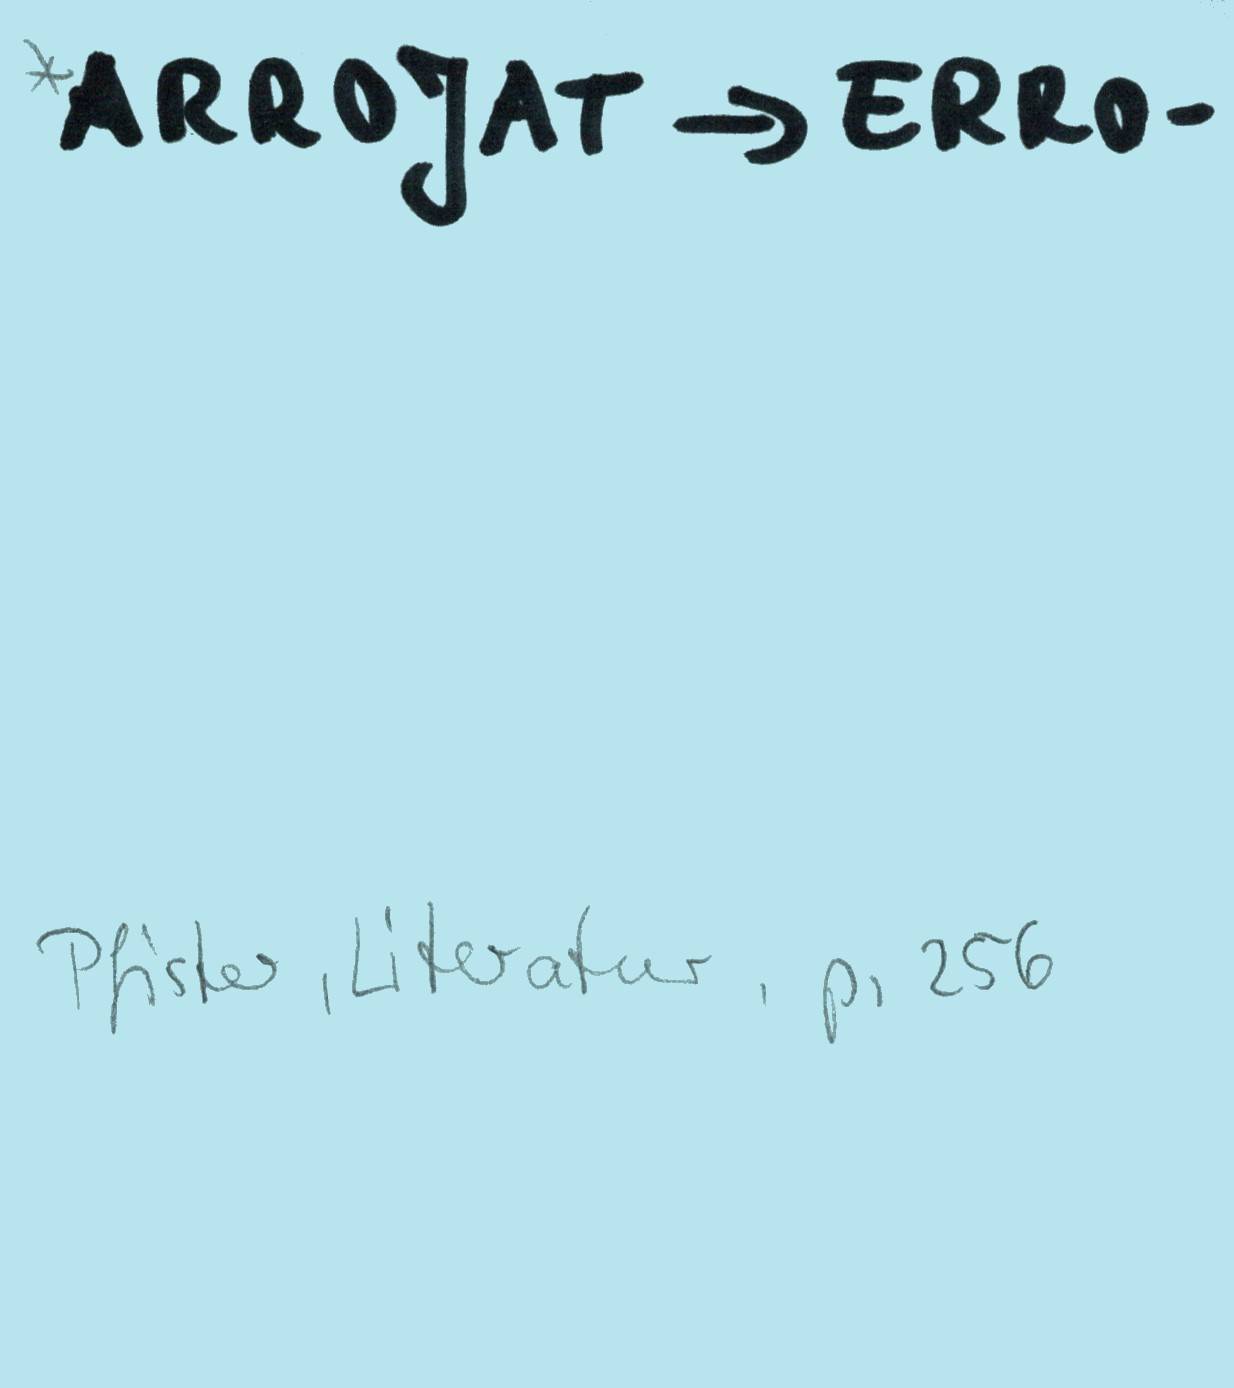 *ARROJAT → ERRO-
Pfister, Literatur, p. 256